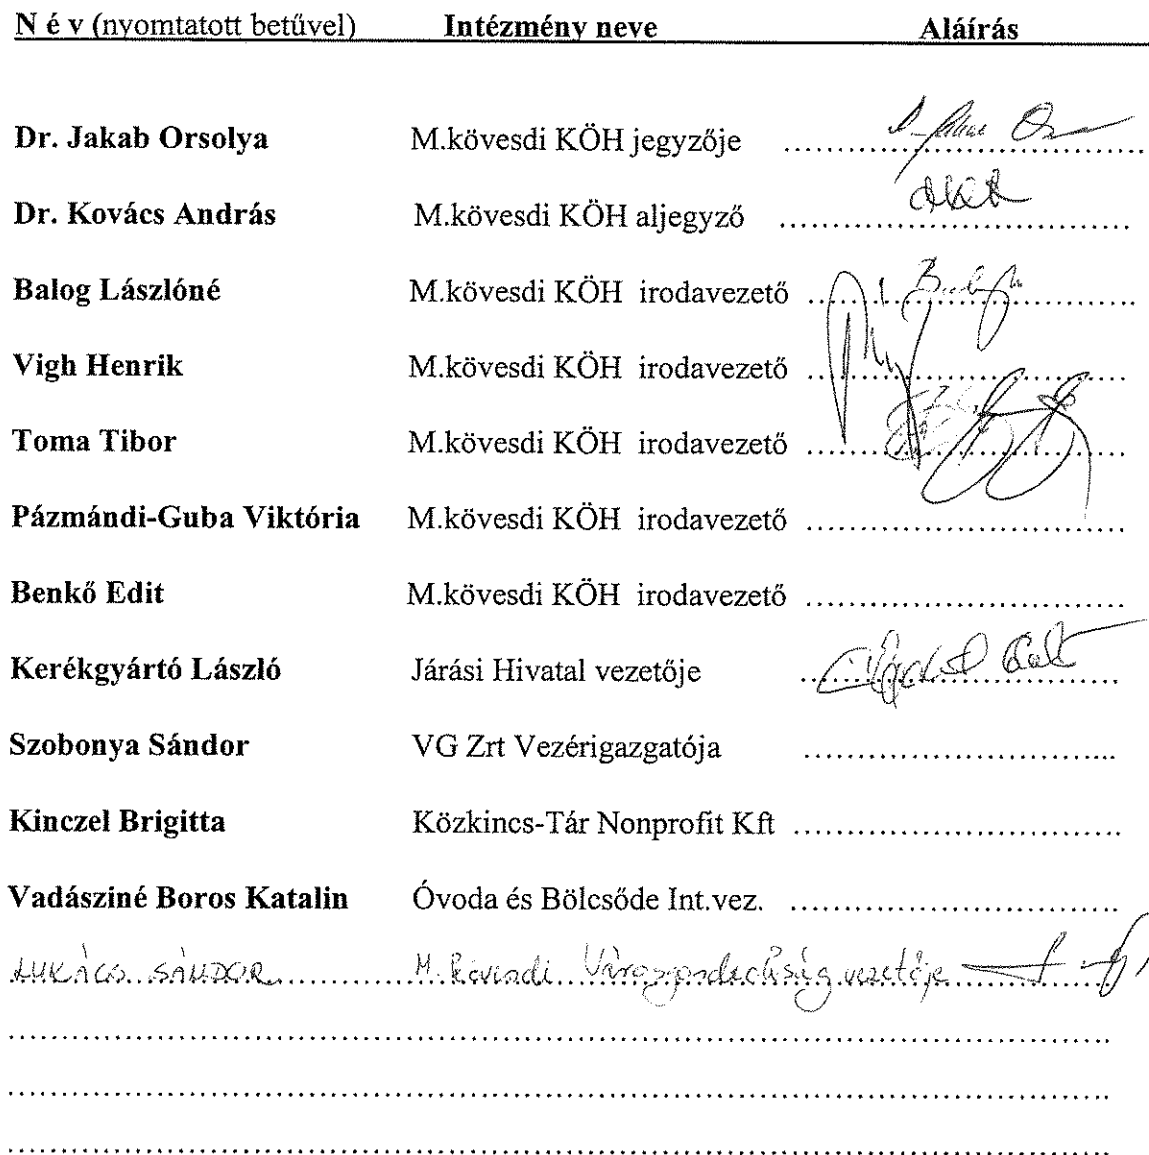 N é v (nyomtatott betűvel) Intézmény neve Aláírás
Dr. Jakab Orsolya M.kövesdi KÖH jegyzője ....................................
Dr. Kovács András M.kövesdi KÖH aljegyző ....................................
Balog Lászlóné M.kövesdi KÖH irodavezető ....................................
Vigh Henrik M.kövesdi KÖH irodavezető ....................................
Toma Tibor M.kövesdi KÖH irodavezető ....................................
Pázmándi-Guba Viktória M.kövesdi KÖH irodavezető ....................................
Benkő Edit M.kövesdi KÖH irodavezető ....................................
Kerékgyártó László Járási Hivatal vezetője ....................................
Szobonya Sándor VG Zrt Vezérigazgatója ....................................
Kinczel Brigitta Közkincs-Tár Nonprofit Kft ....................................
Vadásziné Boros Katalin Óvoda és Bölcsőde Int.vez. ....................................
LUKÁCS SÁNDOR M. kövesdi Városgondnokság vezetője